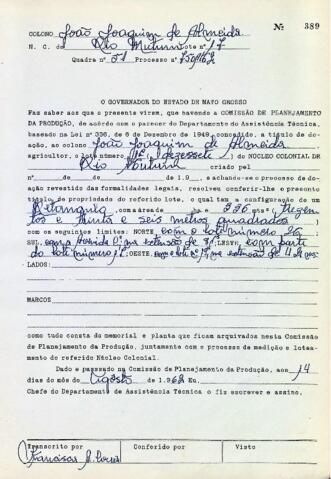 Nº 389
COLONO João Joaquim de Almeida
N. C. de Rio Mutum Lote nº 17
Quadra nº 51 Processo nº
O GOVERNADOR DO ESTADO DE MATO GROSSO
Faz saber aos que o presente virem, que havendo a COMISSÃO DE PLANEJAMENTO
DA PRODUÇÃO, de acôrdo com o parecer do Departamento de Assistência Técnica,
baseado na Lei nº 336, de 6 de Dezembro de 1949, concedido, a título de do-
ação, ao colono João Joaquim de Almeida
agricultor, o lote número 17 (dezessete) do NÚCLEO COLONIAL DE
Rio Mutum criado pel
nº de de de 19 , e achando-se o processo de do-
ação revestido das formalidades legais, resolveu conferir-lhe o presente
título de propriedade do referido lote, o qual tem a configuração de um
Retangulo, com a área de 336 mts² (Trezen
tos e trinta e seis metros quadrados)
com os seguintes limites: NORTE com o lote número
SUL com a Avenida na extensão de LESTE com parte
do lote número OESTE com o lote na extensão de 42 me
LADOS:
MARCOS
como tudo consta do memorial e planta que ficam arquivados nesta Comissão
de Planejamento da Produção, juntamente com o processo de medição e lotea-
mento do referido Núcleo Colonial.
Dado e passado na Comissão de Planejamento da Produção, aos 14
dias do mês de Agosto de 1.962 Eu,
Chefe do Departamento de Assistência Técnica o fiz escrever e assino.
Transcrito por Conferido por Visto
Francisca